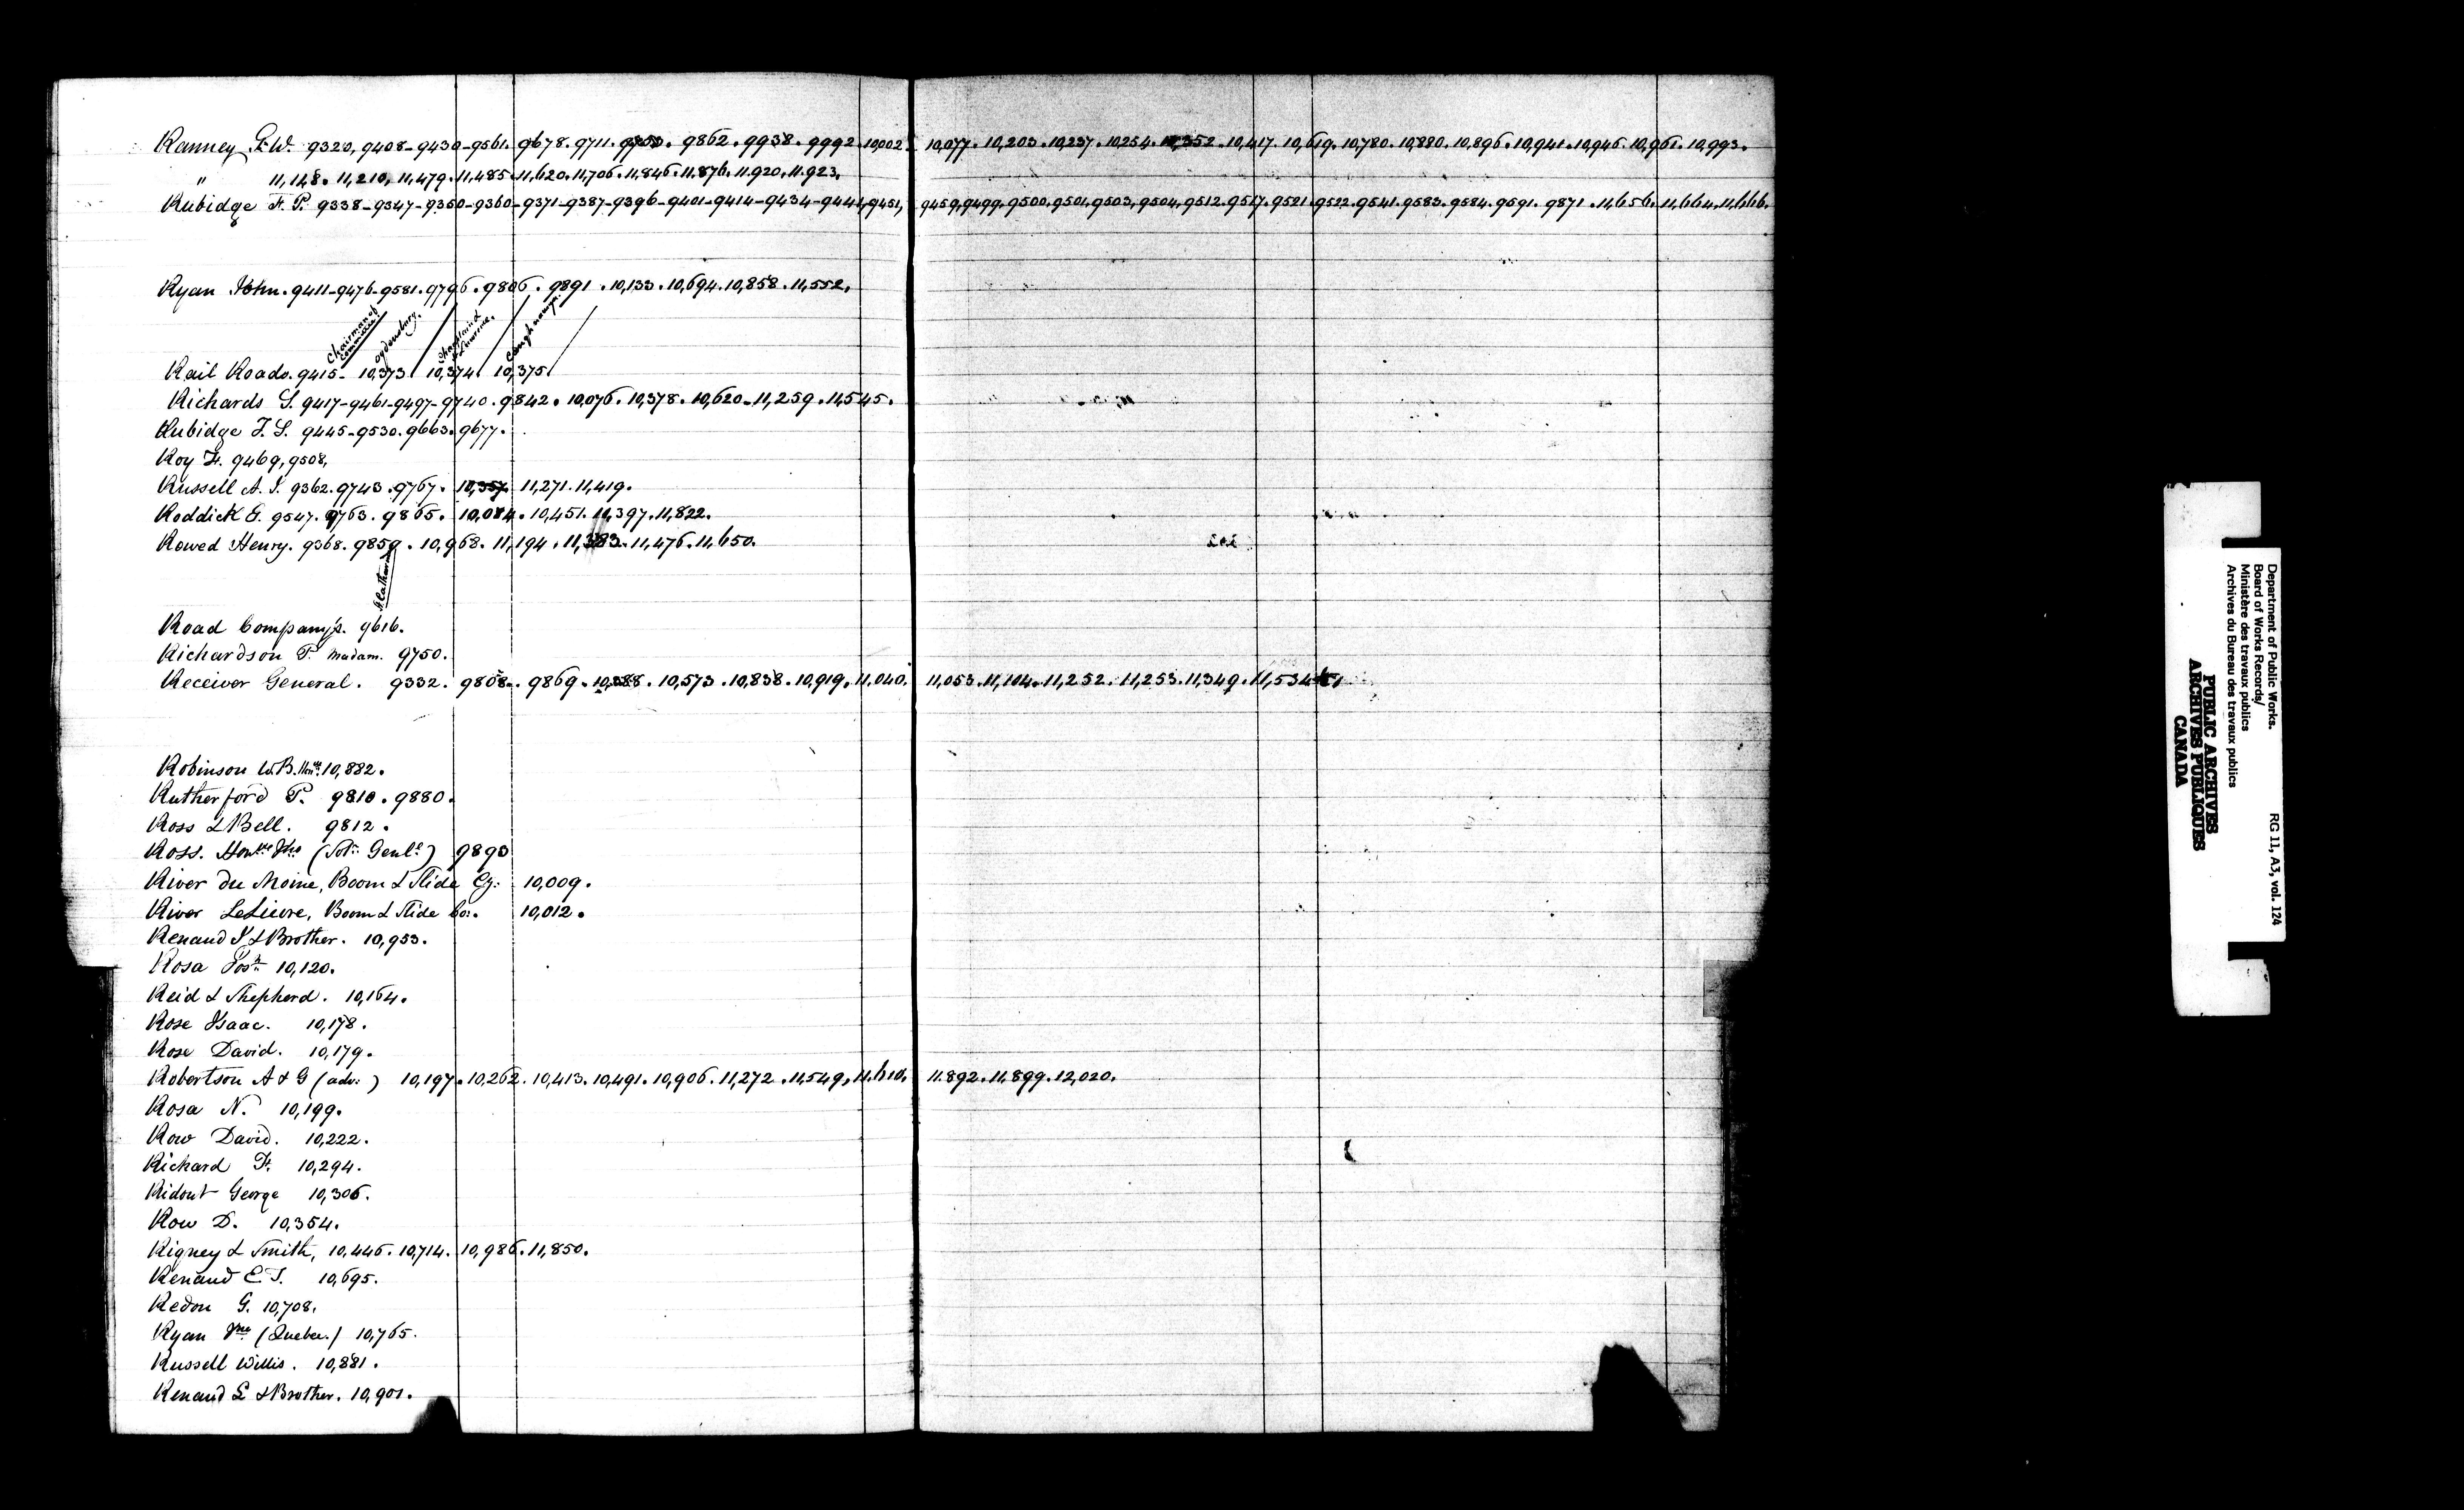 Ranney G. W. 9320, 9408-9430-9561. 9678. 9711. 9862. 9938. 9992. 10,002. 10,077. 10,203. 10,237. 10,254. 10,352. 10,417. 10,619. 10,780. 10,880. 10,896. 10,941. 10,946. 10,961. 10,993.
" 11,148. 11,210, 11,479. 11,485. 11,620. 11,706. 11,846. 11,876. 11.920. 11.923.
Rubidge F. P. 9338-9347-9350-9360-9371-9387-9396-9401-9414-9434-9441, 9451, 9459, 9499, 9500, 9501, 9503, 9504, 9512. 9517. 9521. 9522. 9541. 9583. 9584. 9591. 9871. 11,656. 11,664. 11,666.
Ryan John. 9411-9476-9581. 9796. 9806. 9891. 10,133. 10,694. 10,858. 11,552.
Chairman of Committee
Ogdensburg.
Caughnawaga
Rail Roads. 9415- 10,373 10,374 10,375
Richards S. 9417-9461-9497-9740. 9842. 10,076. 10,378. 10,620-11,259. 11,545.
Rubidge T. S. 9445-9530. 9663. 9677.
Roy F. 9469, 9508,
Russell A. J. 9362. 9743. 9767. 10,357. 11,271. 11,419.
Roddick G. 9547. 9763. 9865. 10,084. 10,451. 11,397. 11,822.
Rowed Henry. 9368. 9859. 10,968. 11,194. 11,383. 11,476. 11,650.
Road Company's. 9616.
Richardson P. Madam. 9750.
Receiver General. 9332. 9808. 9869. 10,388. 10,573. 10,838. 10,919. 11,040. 11,053. 11,104. 11,252. 11,253. 11,349. 11,534
Robinson W. B. Honble 10,882.
Rutherford P. 9810. 9880.
Ross & Bell. 9812.
Ross. Honble Jno (Solr Genl) 9890
River du Moine, Boom & Slide Cy: 10,009.
River LeLievre, Boom & Slide Co:. 10,012.
Renaud J & Brother. 10,953.
Rosa Josh 10,120.
Reid & Shepherd. 10,164.
Rose Isaac. 10,178.
Rose David. 10,179.
Robertson A & G (adv:) 10,197. 10,262. 10,413. 10,491. 10,906. 11,272. 11,549, 11,610. 11.892. 11,899. 12,020.
Rosa N. 10,199.
Row David. 10,222.
Richard F. 10,294.
Ridout George 10,306.
Row D. 10,354.
Rigney & Smith, 10,446. 10,714. 10,986. 11,850.
Renaud E. J. 10,695.
Redon G. 10,708.
Ryan Jno (Quebec.) 10,765.
Russell Willis. 10,881.
Renaud L & Brother. 10,901.
Department of Public Works.
Board of Works Records/
Ministère des travaux publics
Archives du Bureau des travaux publics
RG 11, A3, vol. 124
PUBLIC ARCHIVES
ARCHIVES PUBLIQUES
CANADA